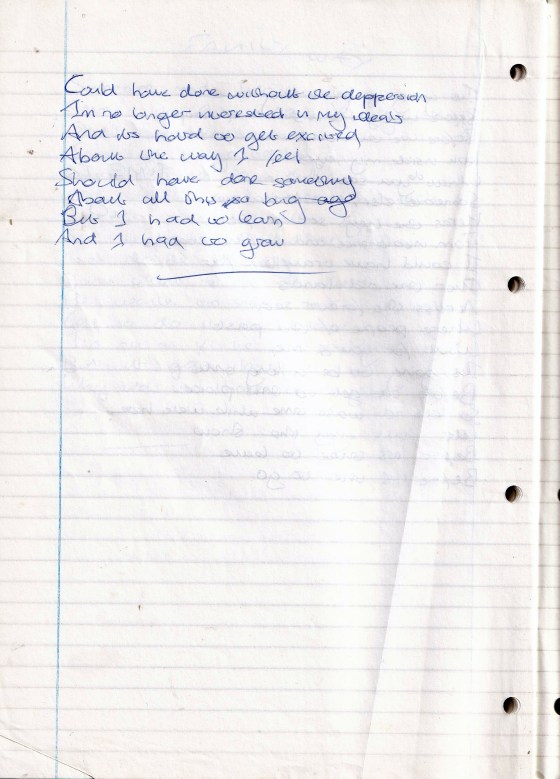 Could have done without the deppression
Im no longer interested in my ideals
And its hard to get excited
About the way I feel
Should have done something
About all this so long ago
But I had to learn
And I had to grow